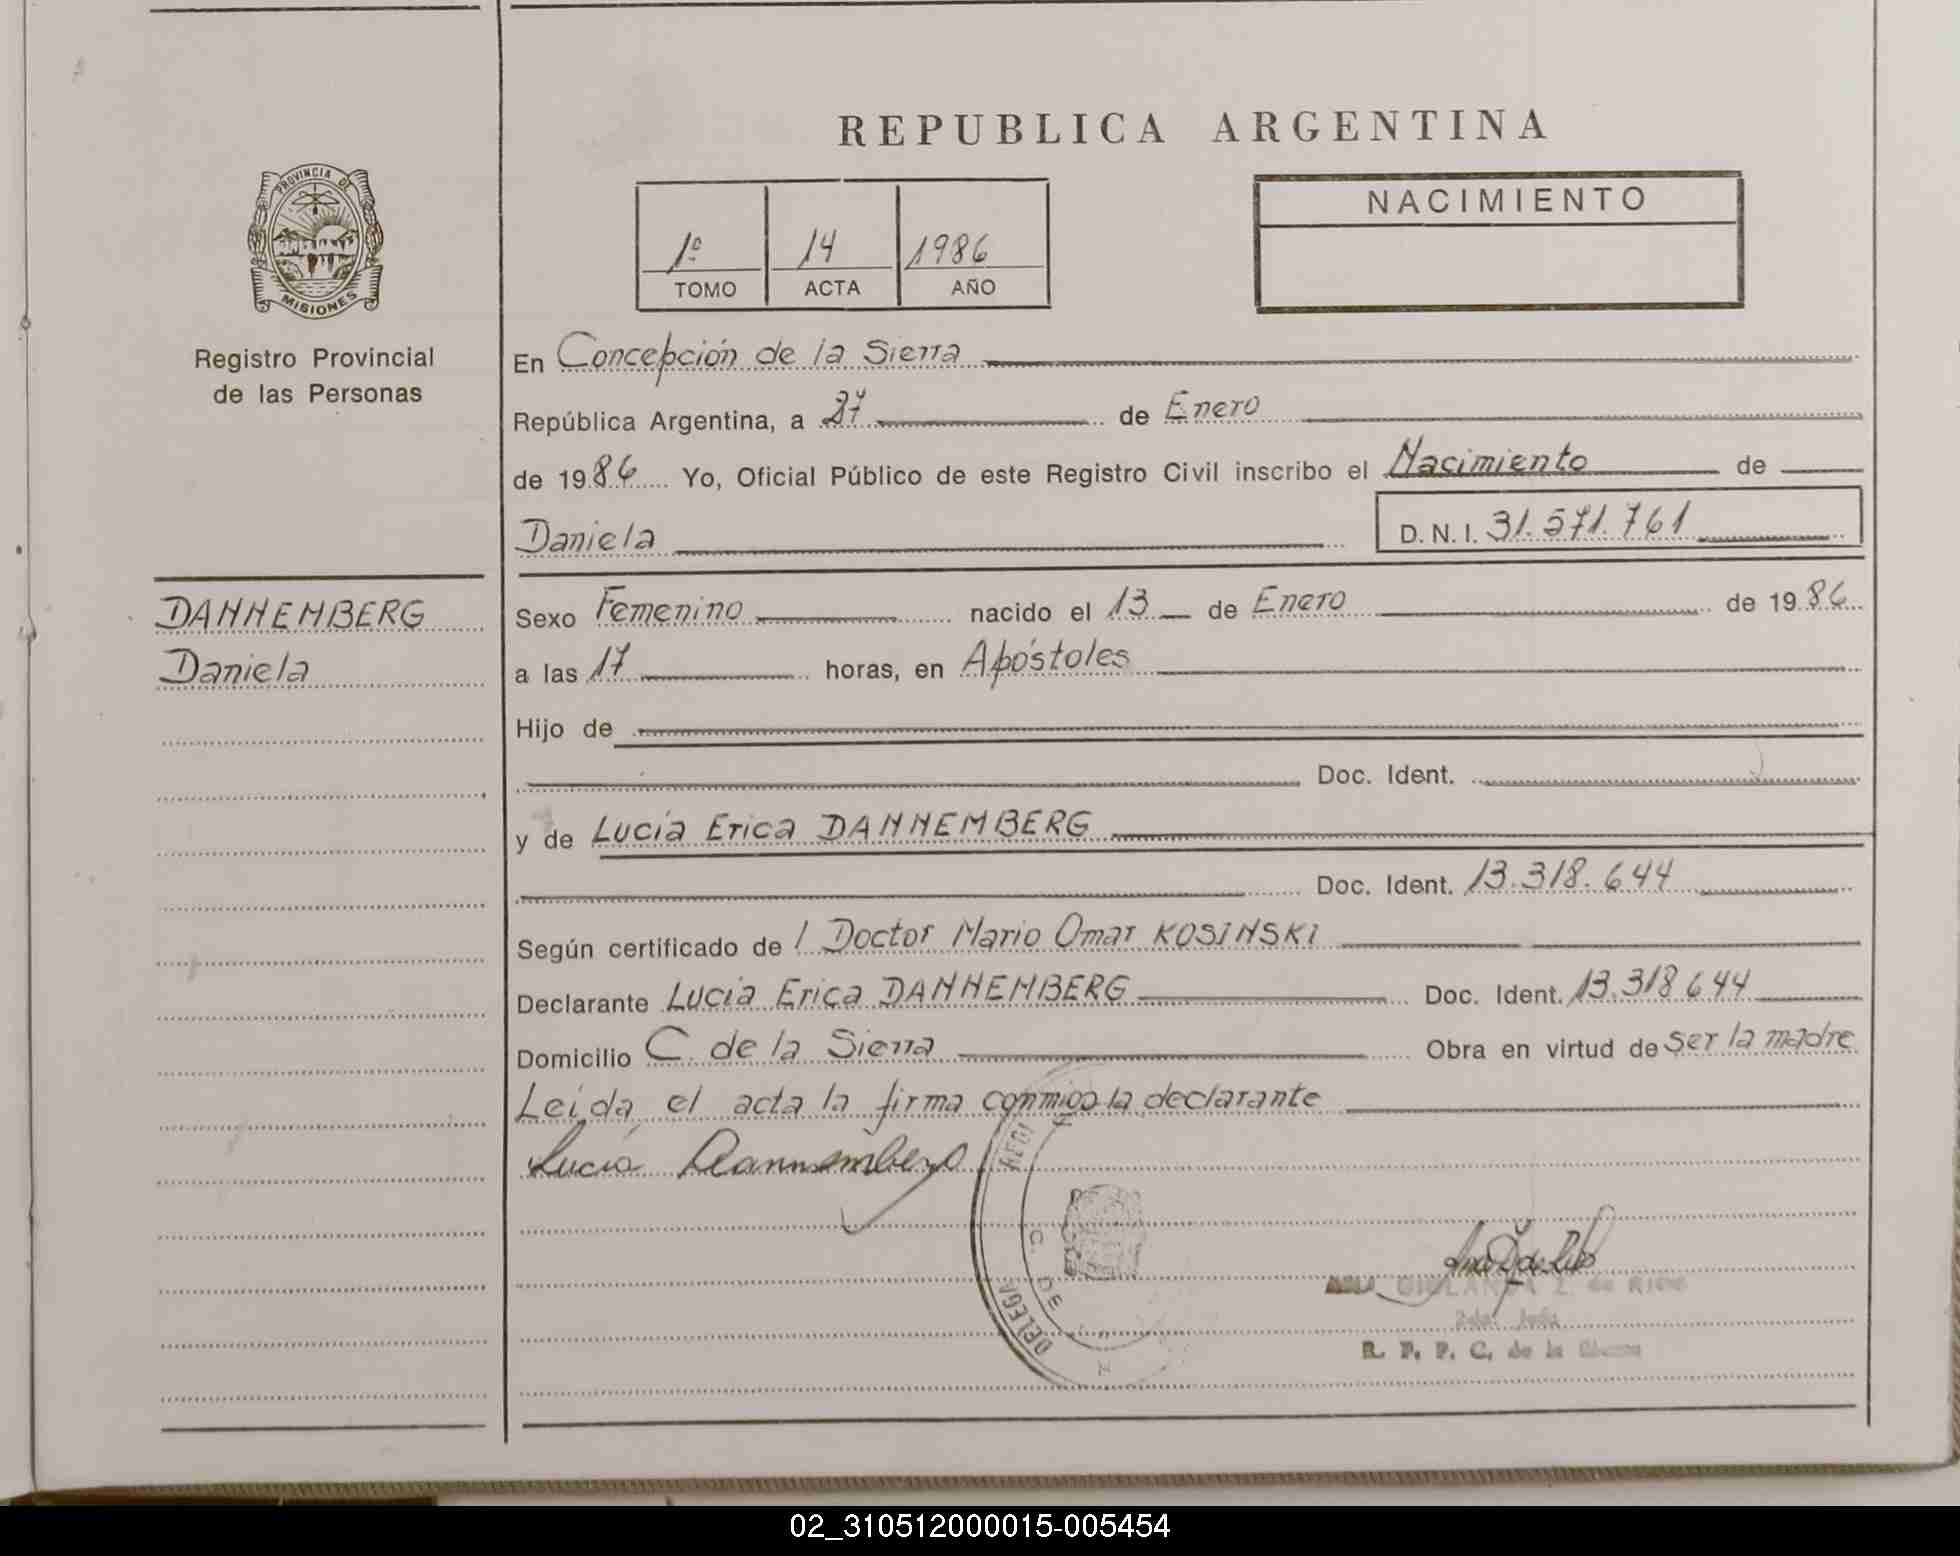 REPUBLICA ARGENTINA
PROVINCIA DE
MISIONES
Registro Provincial
de las Personas
1º 14 1986
TOMO ACTA AÑO
NACIMIENTO
En Concepción de la Sierra
República Argentina, a 27 de Enero
de 1986 Yo, Oficial Público de este Registro Civil inscribo el Nacimiento de
Daniela D.N.I. 31.571.761
DANNEMBERG
Daniela
Sexo Femenino nacido el 13 de Enero de 1986
a las 17 horas, en Apóstoles
Hijo de
Doc. Ident.
y de Lucía Erica DANNEMBERG
Doc. Ident. 13.318.644
Según certificado de l Doctor Mario Omar KOSINSKI
Declarante Lucía Erica DANNEMBERG Doc. Ident. 13.318644
Domicilio C. de la Sierra Obra en virtud de ser la madre
Leída el acta la firma conmigo la declarante
Lucía Dannemberg
REGI
C. DE
DELEGA
R. P. P. C. de la Sierra
02_310512000015-005454